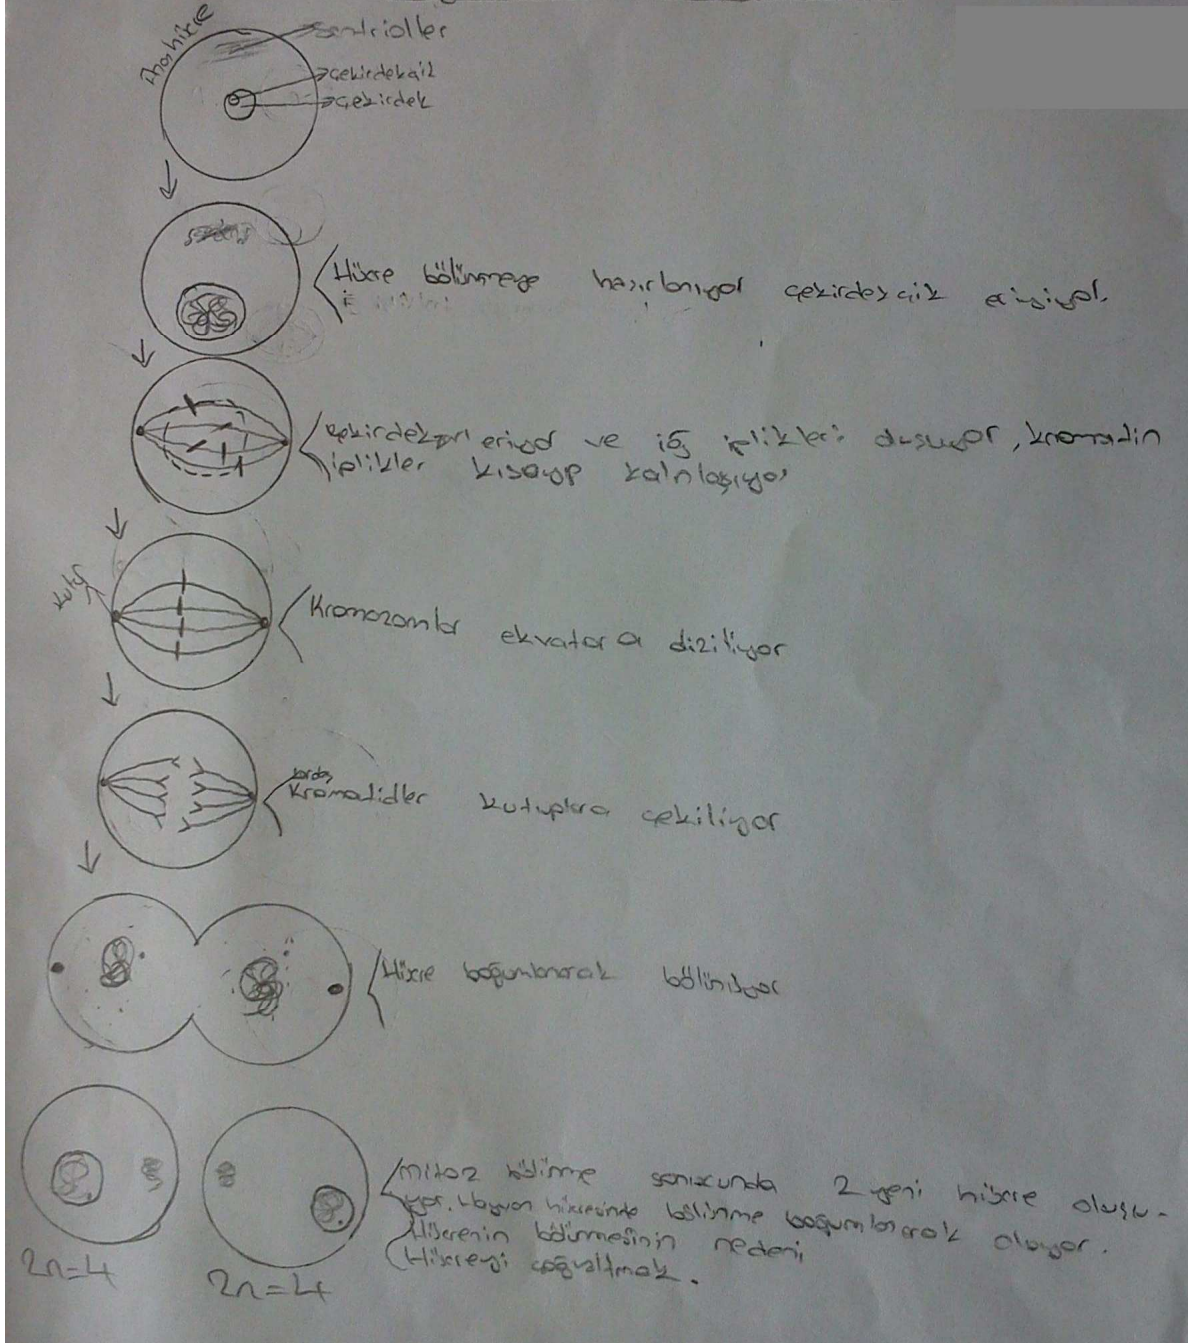 Anahücre
Sentrioller
çekirdekçik
çekirdek
Hücre bölünmeye hazırlanıyor çekirdekçik eriyiyor.
eriyor ve iğ iplikleri oluşuyor, kromadin
iplikler kısayıp kalınlaşıyor
Kutup
Kromozomlar ekvatora diziliyor
kardeş
Kromatidler kutuplara çekiliyor
Hücre boğumlanarak bölünüyor
Mitoz bölünme sonucunda 2 yeni hücre oluşu-
yor. Hayvan hücresinde bölünme boğumlanarak oluyor.
Hücrenin bölünmesinin nedeni,
Hücreyi çoğaltmak.
2n=4
2n=4